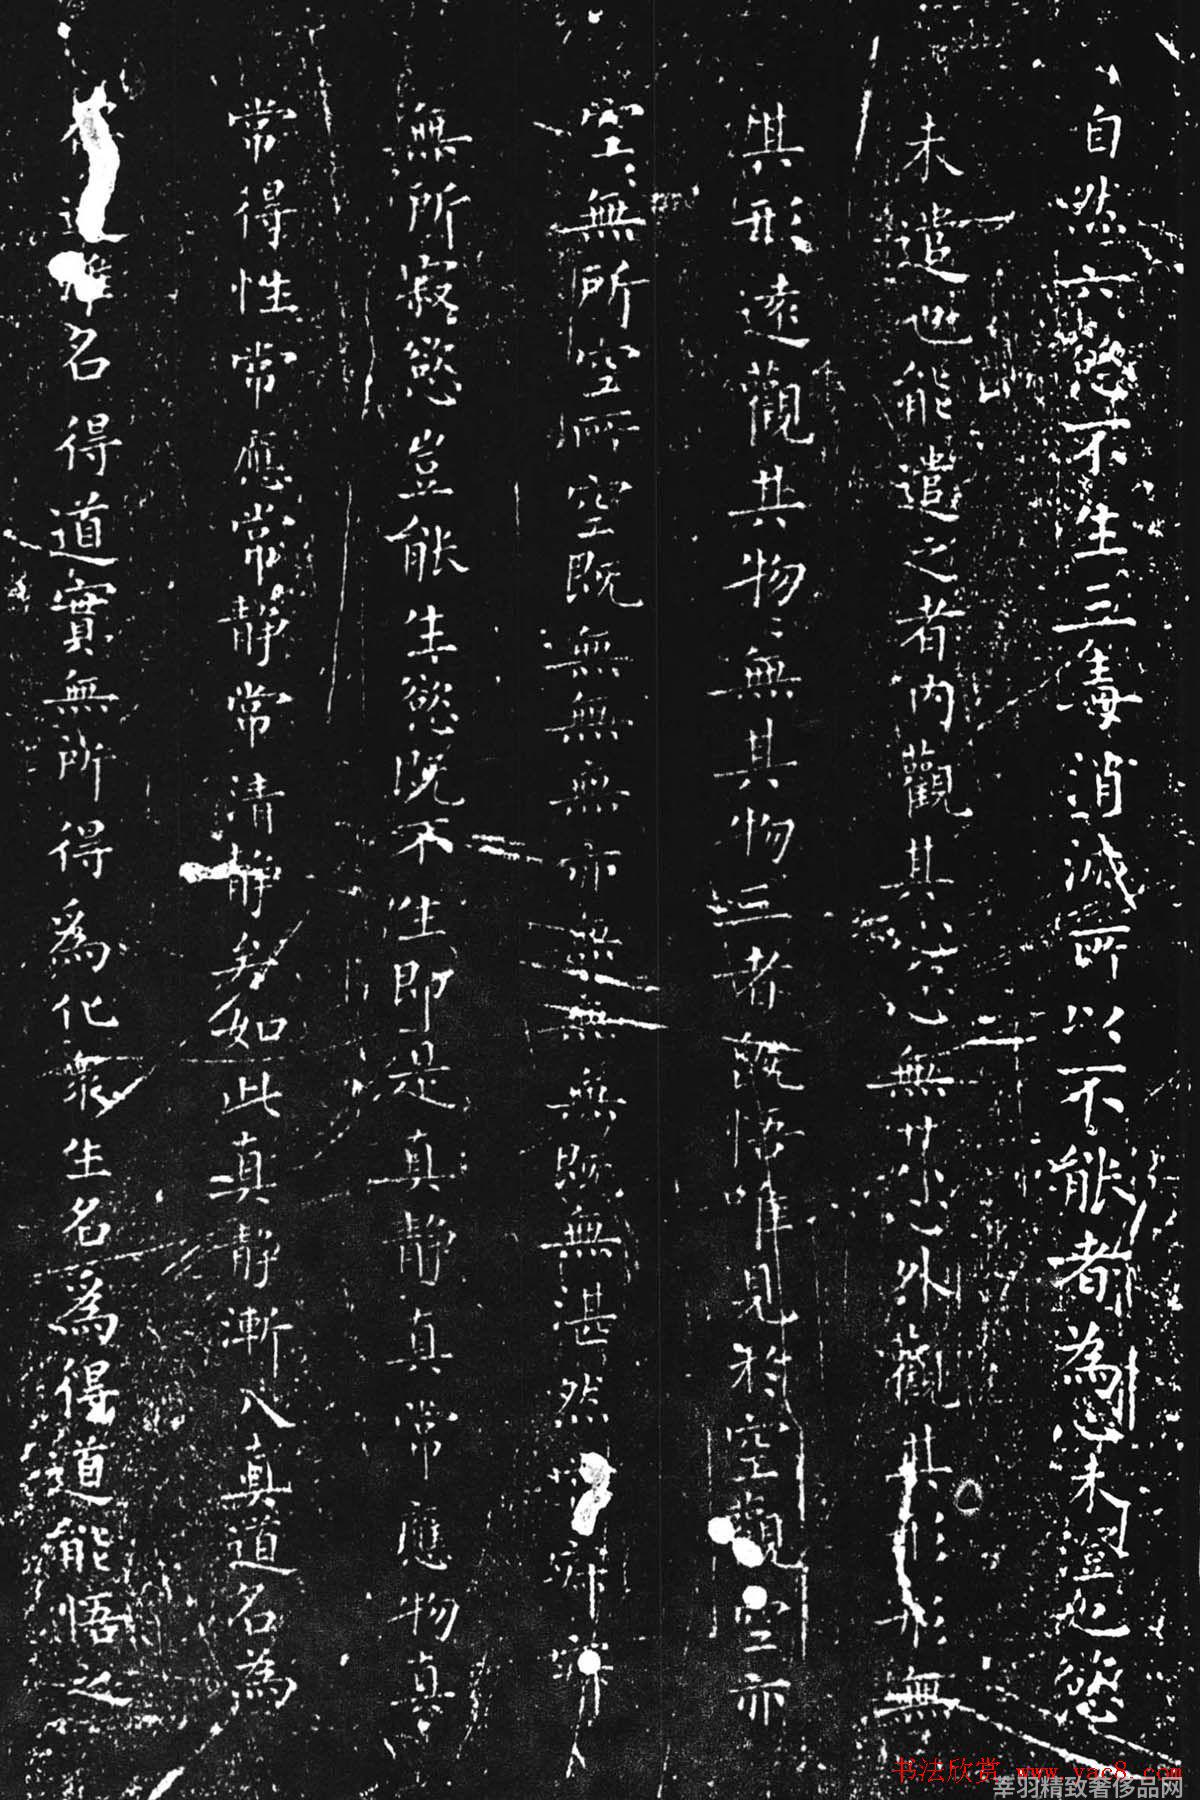 自然六慾不生三毒消滅所以不能者為心未澄也慾
未遣也能遣之者內觀其心心無其心外觀其形形無
其形遠觀其物〻無其物三者既悟唯見於空觀空亦
空〻無所空所空既無無無亦無無無既無湛然常寂寂
無所寂慾豈能生慾既不生即是真靜真常應物真
常得性常應常靜常清靜矣如此真靜漸入真道名為
道雖名得道實無所得為化眾生名為得道能悟之
书法欣赏 www.yac8.com
莘羽精致奢侈品网